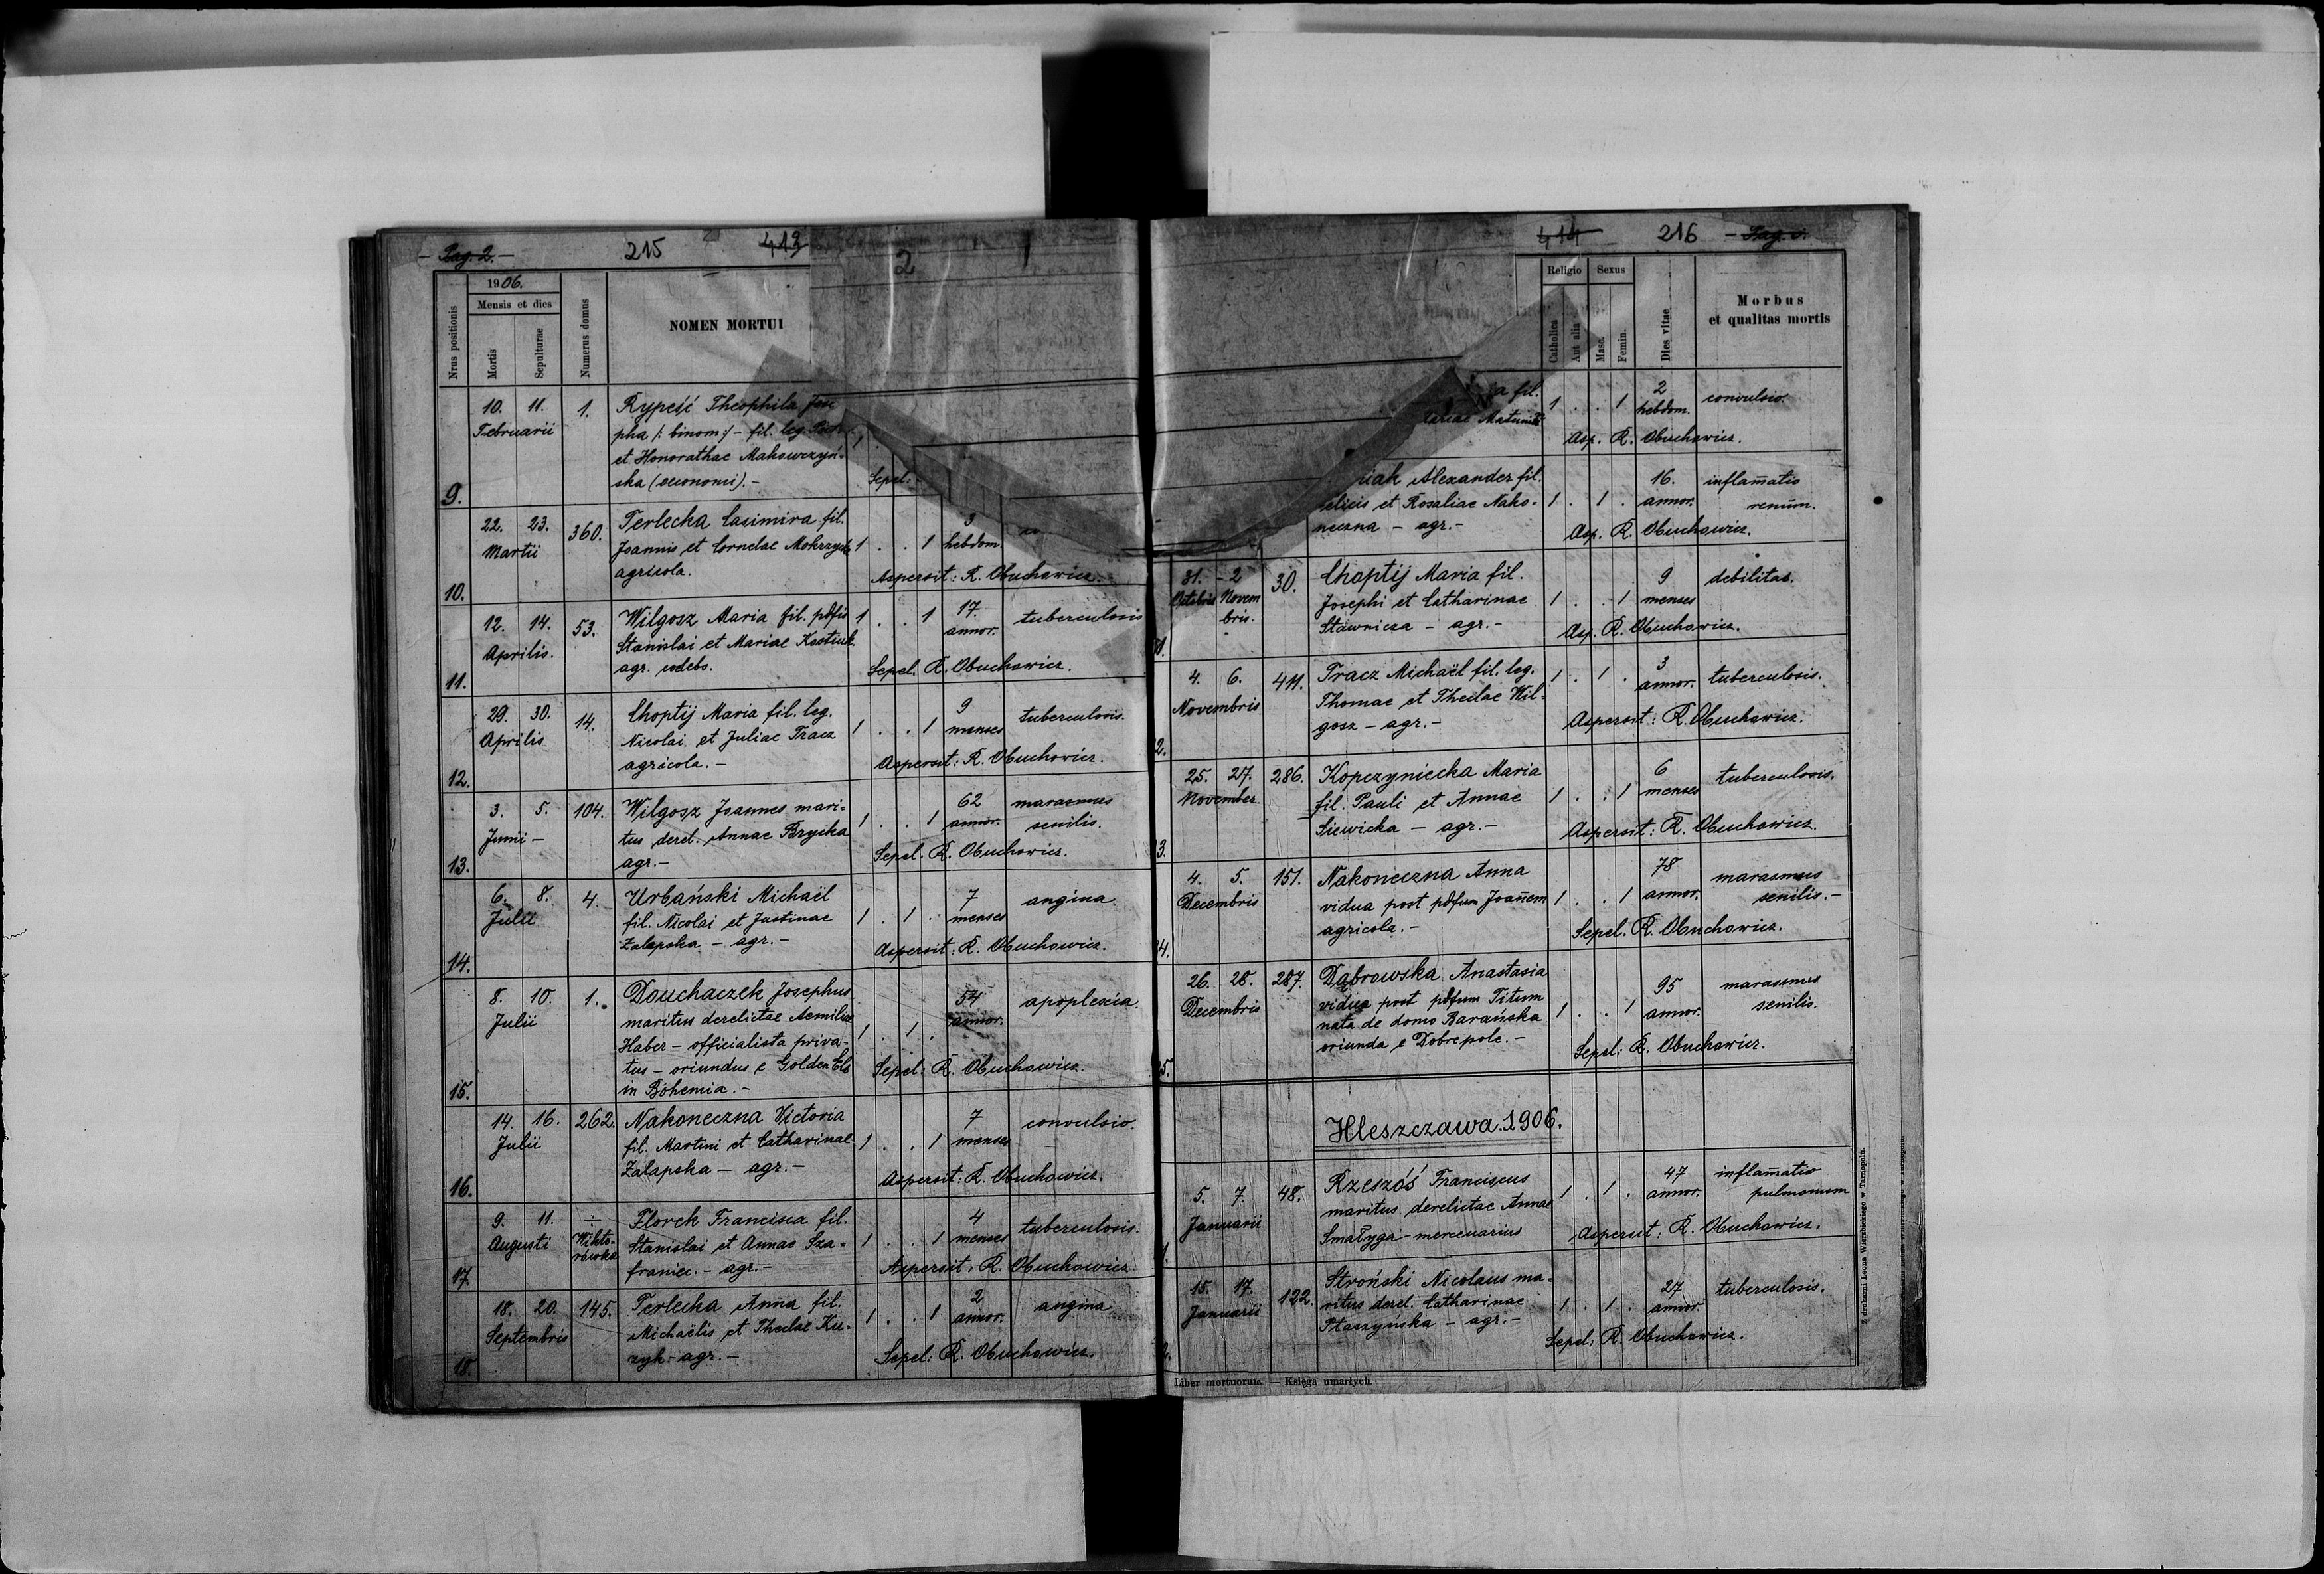 - Pag. 2. -
215
413
2
1906.
Nrus positionis
Mensis et dies
Mortis
Sepulturae
Numerus domus
NOMEN MORTUI
9.
10. 11.
Februarii
1.
Rypeść Theophila Jose
pha (: binom :) - fil. leg.
et Honorathae Makowczyń-
ska (oeconomi). -
1
Sepel:
10.
22. 23.
Martii
360.
Terlecka Casimira fil.
Joannis et Corneliae
agricola.
1 . . 1
3
hebdom.
Aspersit: R. Obuchowicz.
11.
12. 14.
Aprilis.
53.
Wilgosz Maria fil. pdfti
Stanislai et Mariae Kostiuk
agr. coelebs.
1 . . 1
17.
annor.
tuberculosis
Sepel. R. Obuchowicz.
12.
29. 30.
Aprilis
14.
Choptij Maria fil. leg.
Nicolai et Juliae Tracz
agricola. -
1 . . 1
9
menses
tuberculosis.
Aspersit: R. Obuchowicz.
13.
3. 5.
Junii -
104.
Wilgosz Joannes mari-
tus derel. Annae Bryika
agr. -
1 . . 1
62
annor.
marasmus
senilis.
Sepel. R. Obuchowicz.
14.
6. 8.
Julii
4.
Urbański Michaël
fil. Nicolai et Justinae
Załapska - agr. -
1 . 1 .
7
menses
angina
Aspersit: R. Obuchowicz.
15.
8. 10.
Julii
1.
Douchaczek Josephus
maritus derelictae Aemiliae
Haber - officialista priva-
tus - oriundus e Golden Els
in Bohemia. -
1 . 1 .
54
annor.
apoplexia.
Sepel: R. Obuchowicz.
16.
14. 16.
Julii
262.
Nakoneczna Victoria
fil. Martini et Catharinae
Załapska - agr. -
1 . . 1
7
menses
convulsio.
Aspersit: R. Obuchowicz.
17.
9. 11.
Augusti
÷
Wikto-
rówka
Florek Francisca fil.
Stanislai et Annae Sza-
franiec. - agr. -
1 . . 1
4
menses
tuberculosis.
Aspersit: R. Obuchowicz.
18.
18. 20.
Septembris
145.
Terlecka Anna fil.
Michaëlis et Theclae Ku-
zyk - agr. -
1 . . 1
2
annor.
angina
Sepel: R. Obuchowicz.
414
216
- Pag. 3.
Religio
Sexus
Catholica
Aut alia
Masc.
Femin.
Dies vitae
Morbus
et qualitas mortis
a fil.
1 . . 1
2
hebdom.
convulsio.
Asp. R. Obuchowicz.
Alexander fil.
et Rosaliae Nako-
neczna - agr. -
1 . 1 .
16.
annor.
inflamatio
renum.
Asp. R. Obuchowicz.
31. - 2
Octobris Novem
bris.
30.
Choptij Maria fil.
Josephi et Catharinae
Stawnicza - agr. -
1 . . 1
9
menses
debilitas.
Asp. R. Obuchowicz.
2.
4. 6.
Novembris
411.
Tracz Michaël fil. leg.
Thomae et Theclae Wil-
gosz - agr. -
1 . 1 .
3
annor.
tuberculosis.
Aspersit: R. Obuchowicz.
3.
25. 27.
November
286.
Kopczyniecka Maria
fil. Pauli et Annae
Siewicka - agr. -
1 . . 1
6
menses
tuberculosis.
Aspersit: R. Obuchowicz.
4.
4. 5.
Decembris
151.
Nakoneczna Anna
vidua post pdfum Joañem
agricola. -
1 . . 1
78
annor.
marasmus
senilis. -
Sepel. R. Obuchowicz.
5.
26. 28.
Decembris
287.
Dąbrowska Anastasia
vidua post pdfum Titum
nata de domo Barańska
oriunda e Dobrepole. -
1 . . 1
95
annor.
marasmus
senilis.
Sepel: R. Obuchowicz.
Hleszczawa. 1906.
1.
5. 7.
Januarii
48.
Rzeszóś Franciscus
maritus derelictae Annae
Smałyga - mercenarius
1 . 1 .
47
annor.
inflamatio
pulmonum
Aspersit: R. Obuchowicz.
2.
15. 17.
Januarii
122.
Stroński Nicolaus ma-
ritus derel. Catharinae
Ptaszyńska - agr. -
1 . 1 .
27
annor.
tuberculosis.
Sepel: R. Obuchowicz.
Liber mortuorum. — Księga umarłych.
Z drukarni Leona Wierzbickiego w Tarnopolu.